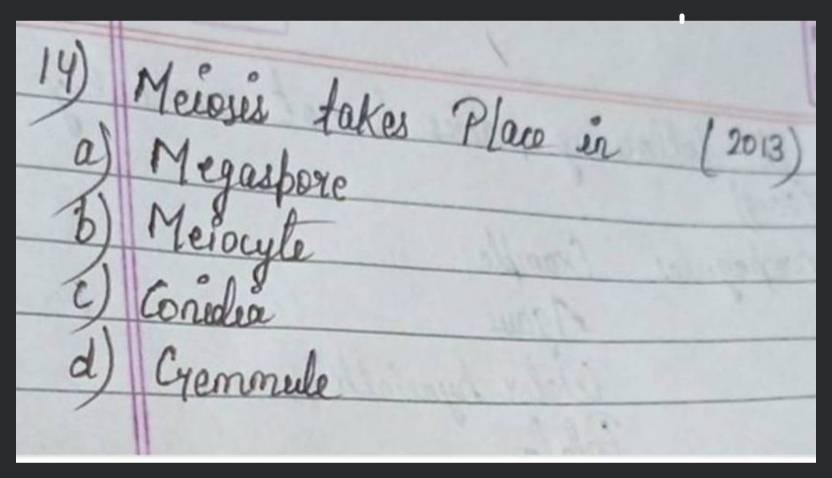 14) Meiosis takes Place in (2013)
a) Megaspore
b) Meiocyte
c) Conidia
d) Gemmule